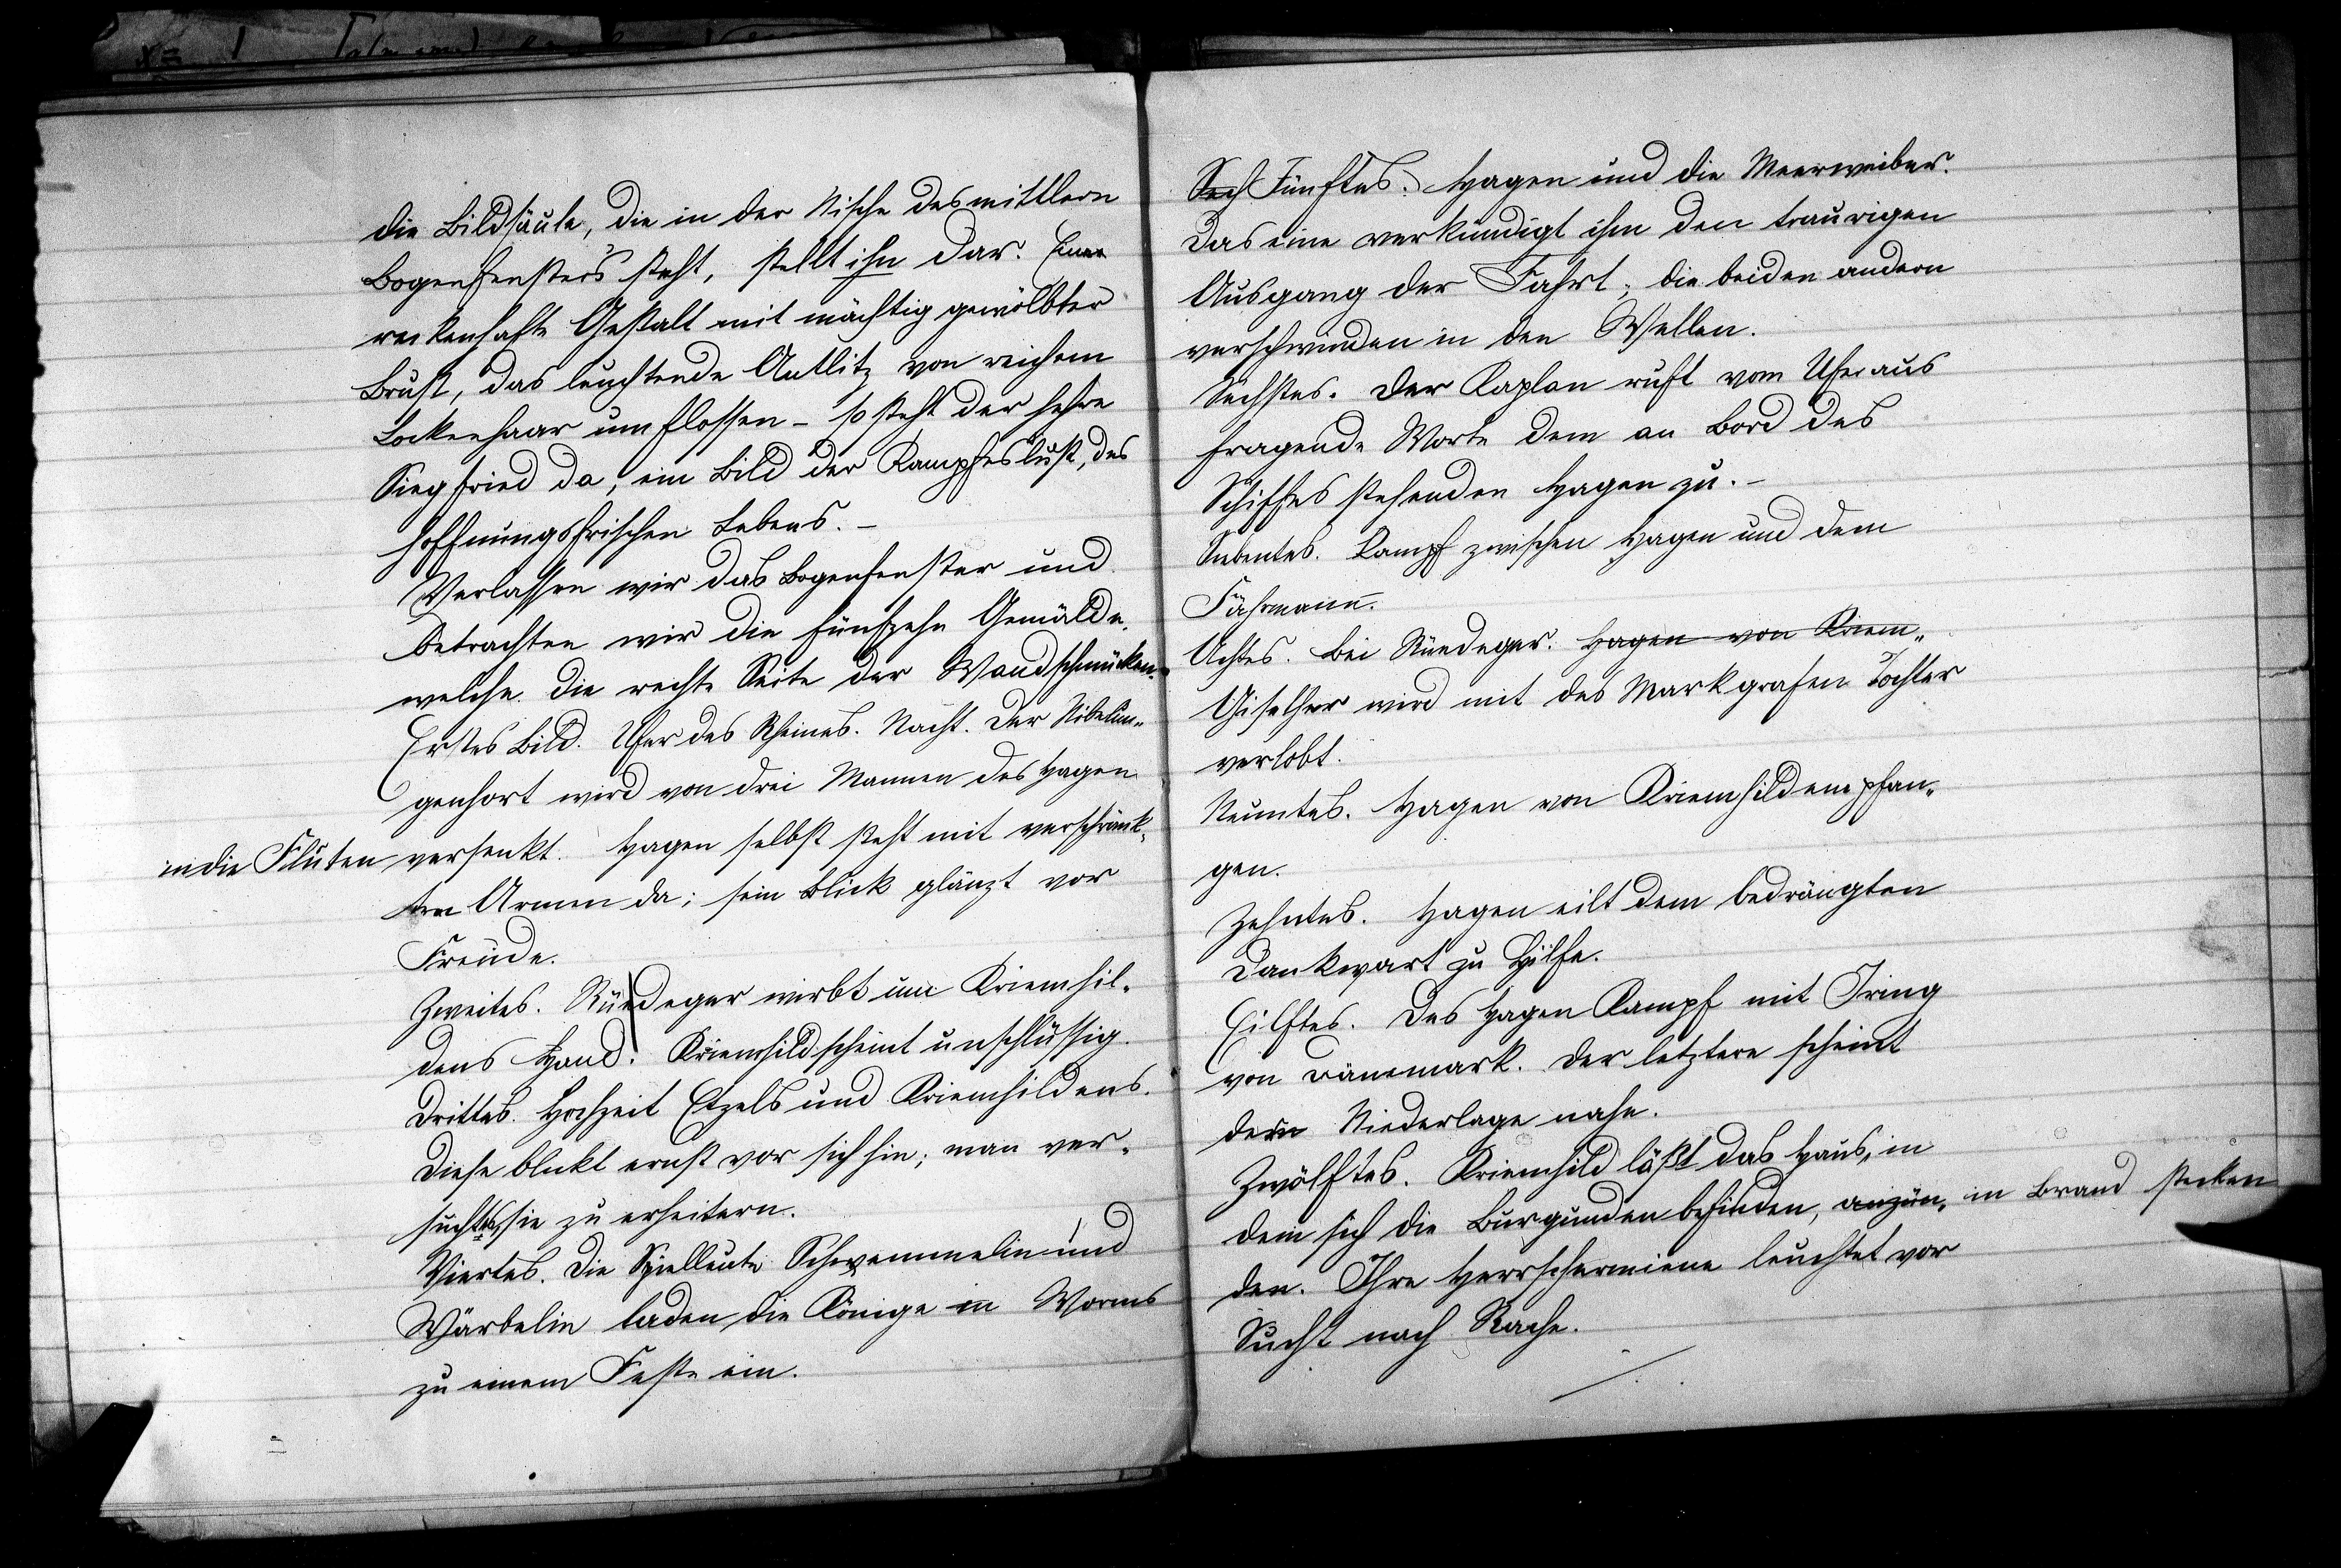 die Bildsäule, die in der Nische des mittlern
Bogenfensters steht, stellt ihn dar. Eine
reckenhafte Gestalt mit mächtig gewölbter
Brust, das leuchtende Antlitz von reichem
Lockenhaar umflossen - so steht der hehre
Siegfried da, ein Bild der Kampfeslust, des
hoffnungsfrischen Lebens. -
Verlassen wir das Bogenfenster und
betrachten wir die fünfzehn Gemälde,
welche die rechte Seite der Wand schmücken.
Erstes Bild. Ufer des Rheines. Nacht. Der Nibelun-
genhort wird von drei Mannen des Hagen
in die Fluten versenkt. Hagen selbst steht mit verschränk-
ten Armen da; sein Blick glänzt vor
Freude.
Zweites. Rüedeger wirbt um Kriemhil-
dens Hand. Kriemhild scheint unschlüssig.
Drittes. Hochzeit Etzels und Kriemhildens.
Diese blickt ernst vor sich hin; man ver-
sucht sie zu erheitern.
Viertes. Die Spielleute Schwemmelin und
Wärbelin laden die Könige in Worms
zu einem Feste ein.
Sech Fünftes. Hagen und die Meerweiber.
Das eine verkündigt ihm den traurigen
Ausgang der Fahrt; die beiden andern
verschwinden in den Wellen.
Sechstes. Der Kaplan ruft vom Ufer aus
fragende Worte dem an Bord des
Schiffes stehenden Hagen zu. -
Siebentes. Kampf zwischen Hagen und dem
Fährmann.
Achtes. Bei Rüedeger. Hagen von Kriem-
Giselher wird mit des Markgrafen Tochter
verlobt.
Neuntes. Hagen von Kriemhild empfan-
gen.
Zehntes. Hagen eilt dem bedrängten
Dankwart zu Hilfe.
Eilftes. Des Hagen Kampf mit Iring
von Dänemark. Der letztere scheint
der Niederlage nahe.
Zwölftes. Kriemhild läßt das Haus, in
dem sich die Burgunden befinden, anzün- in Brand stecken
den. Ihre Herrschermiene leuchtet vor
Sucht nach Rache.